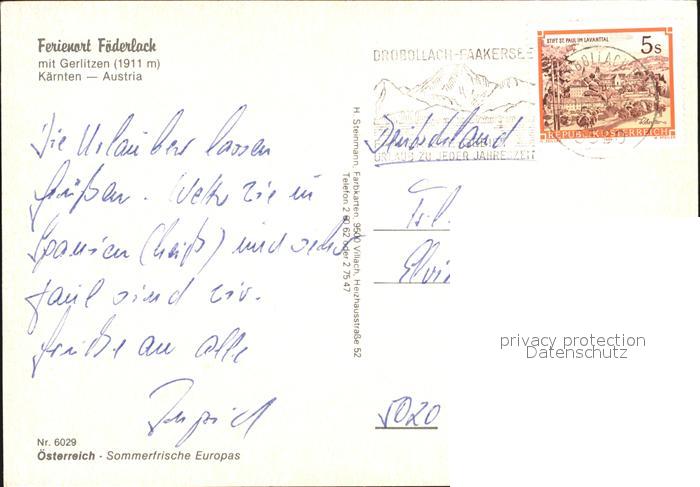 Ferienort Föderlach
mit Gerlitzen (1911 m)
Kärnten — Austria
Die Urlauber lassen
grüßen. Wetter wie in
Spanien (heiß) und sehr
faul sind wir.
Grüße an alle
H. Steinmann, Farbkarten, 9500 Villach, Heizhausstraße 52
Telefon 2 60 62 oder 2 75 47
DROBOLLACH-FAAKERSEE
URLAUB ZU JEDER JAHRESZEIT
STIFT ST. PAUL IM LAVANTTAL
5 S
REPUBLIK ÖSTERREICH
Deutschland
Frl.
5020
privacy protection
Datenschutz
Nr. 6029
Österreich - Sommerfrische Europas